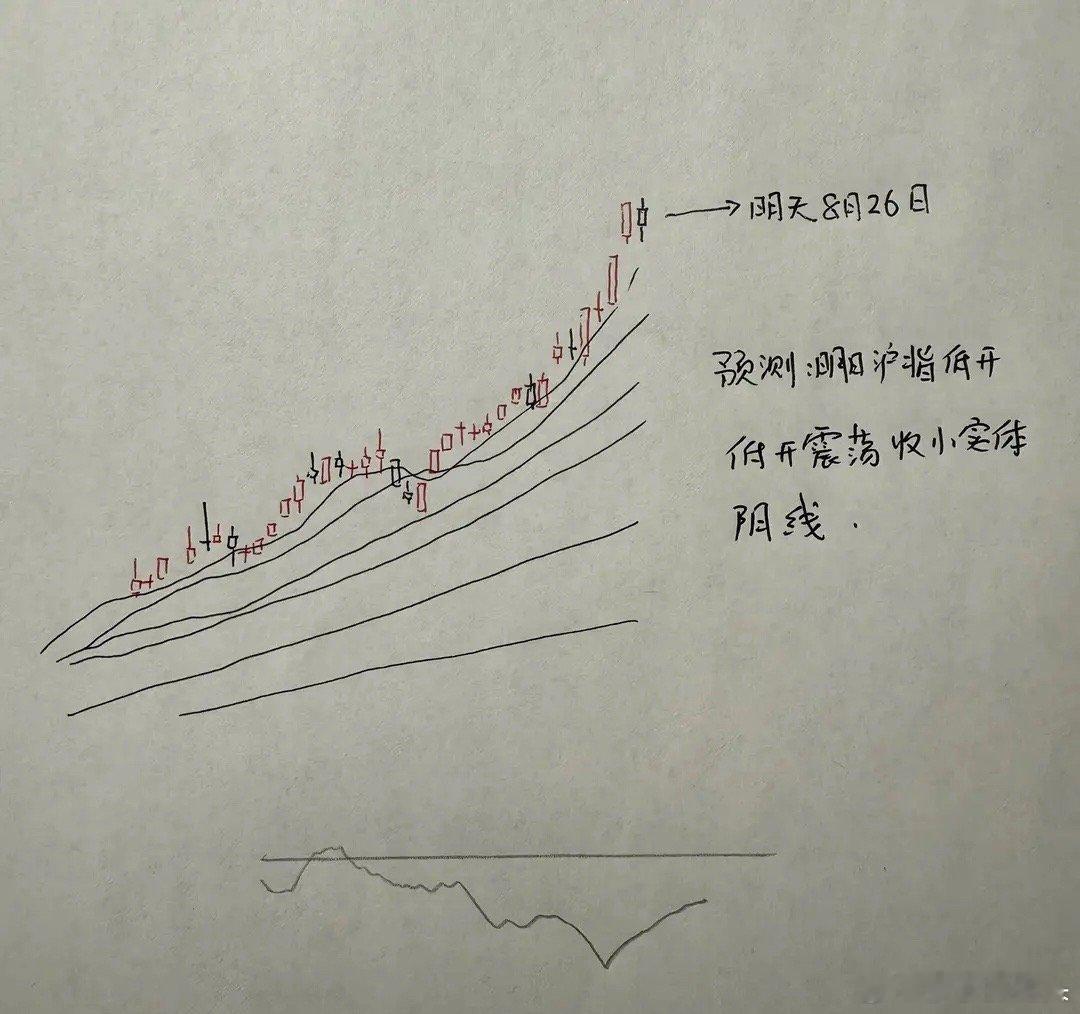 阴天8月26日
预测:明日沪指低开
低开震荡收小实体
阴线.